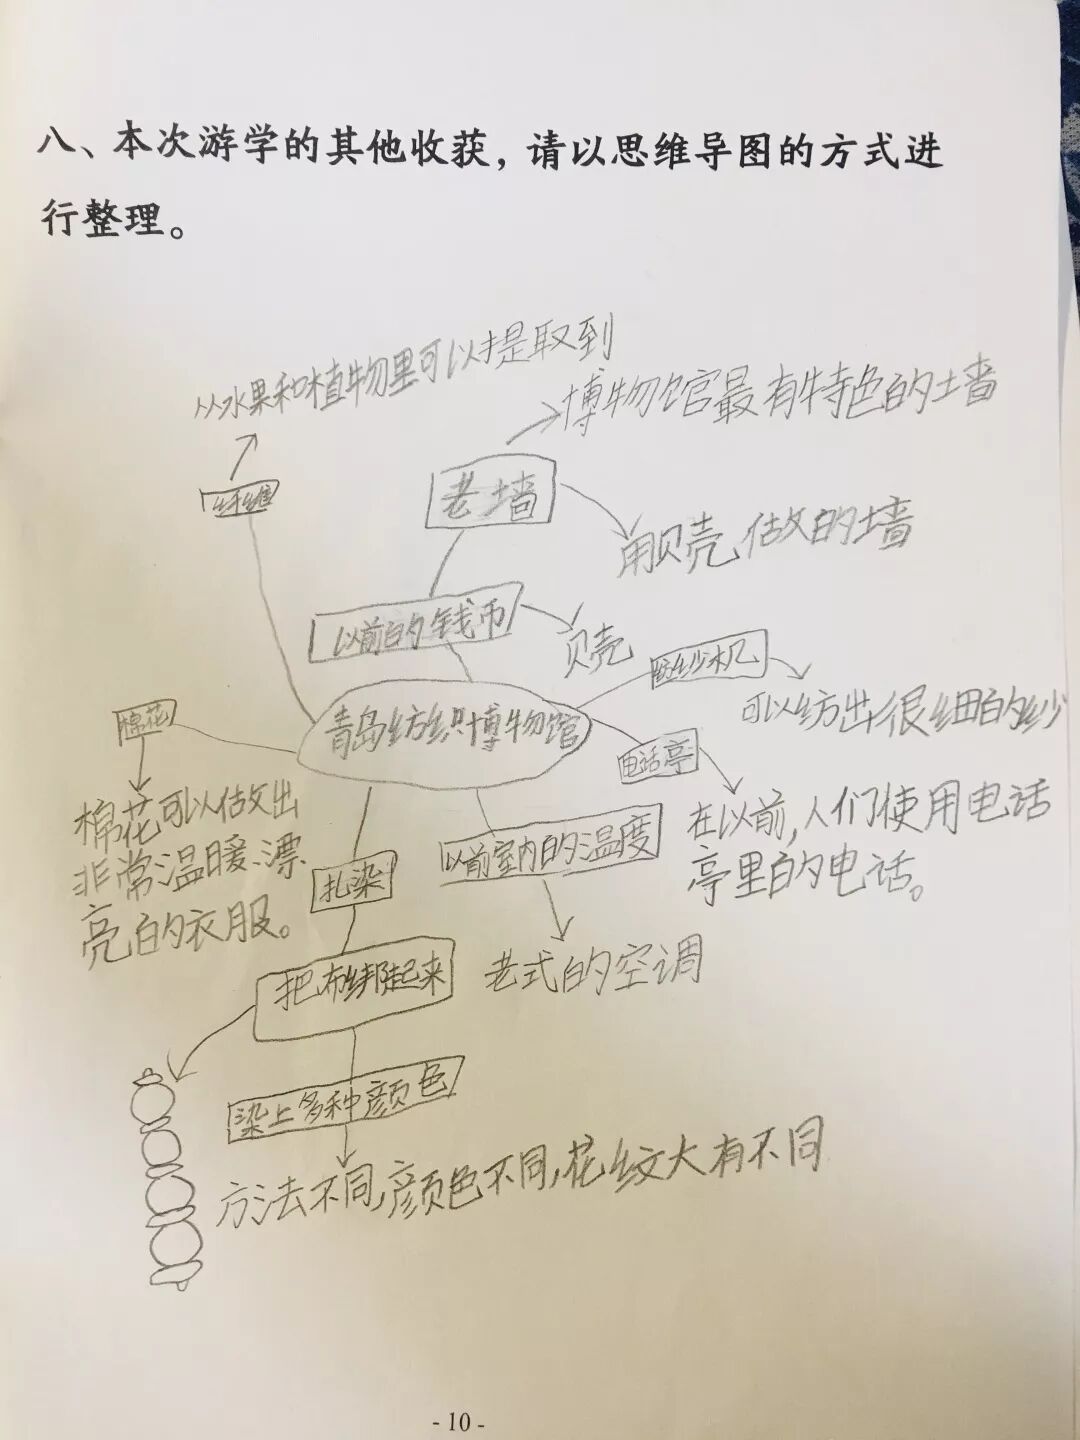 八、本次游学的其他收获，请以思维导图的方式进
行整理。
从水果和植物里可以提取到
博物馆最有特色的墙
纤维
老墙
用贝壳做的墙
以前的钱币
贝壳
纺纱机
可以纺出很细的纱
棉花
青岛纺织博物馆
电话亭
棉花可以做出
非常温暖漂
亮的衣服。
以前室内的温度
在以前,人们使用电话
亭里的电话。
扎染
把布绑起来
老式的空调
染上多种颜色
方法不同,颜色不同,花纹大有不同
- 10 -